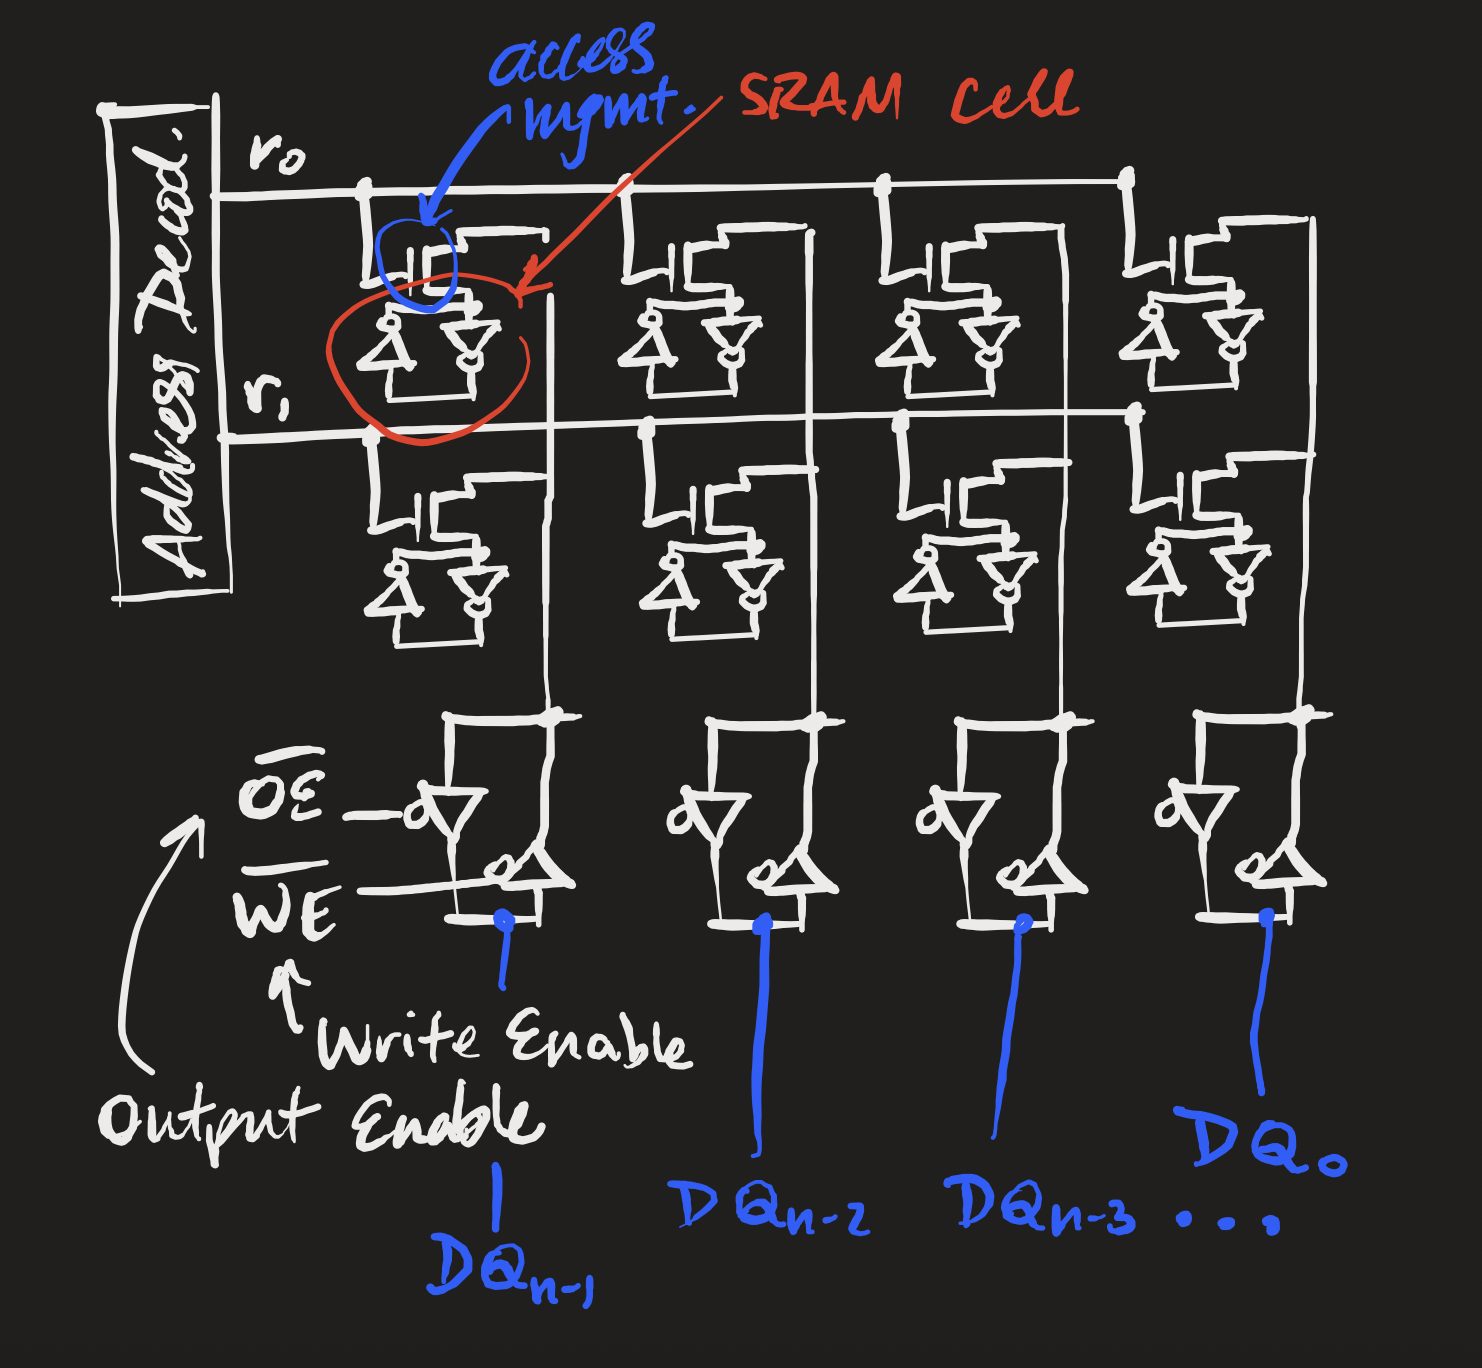 access
mgmt.
SRAM cell
Address Decod.
r₀
r₁
O̅E̅
W̅E̅
Write Enable
Output Enable
DQₙ₋₁
DQₙ₋₂
DQₙ₋₃ ...
DQ₀